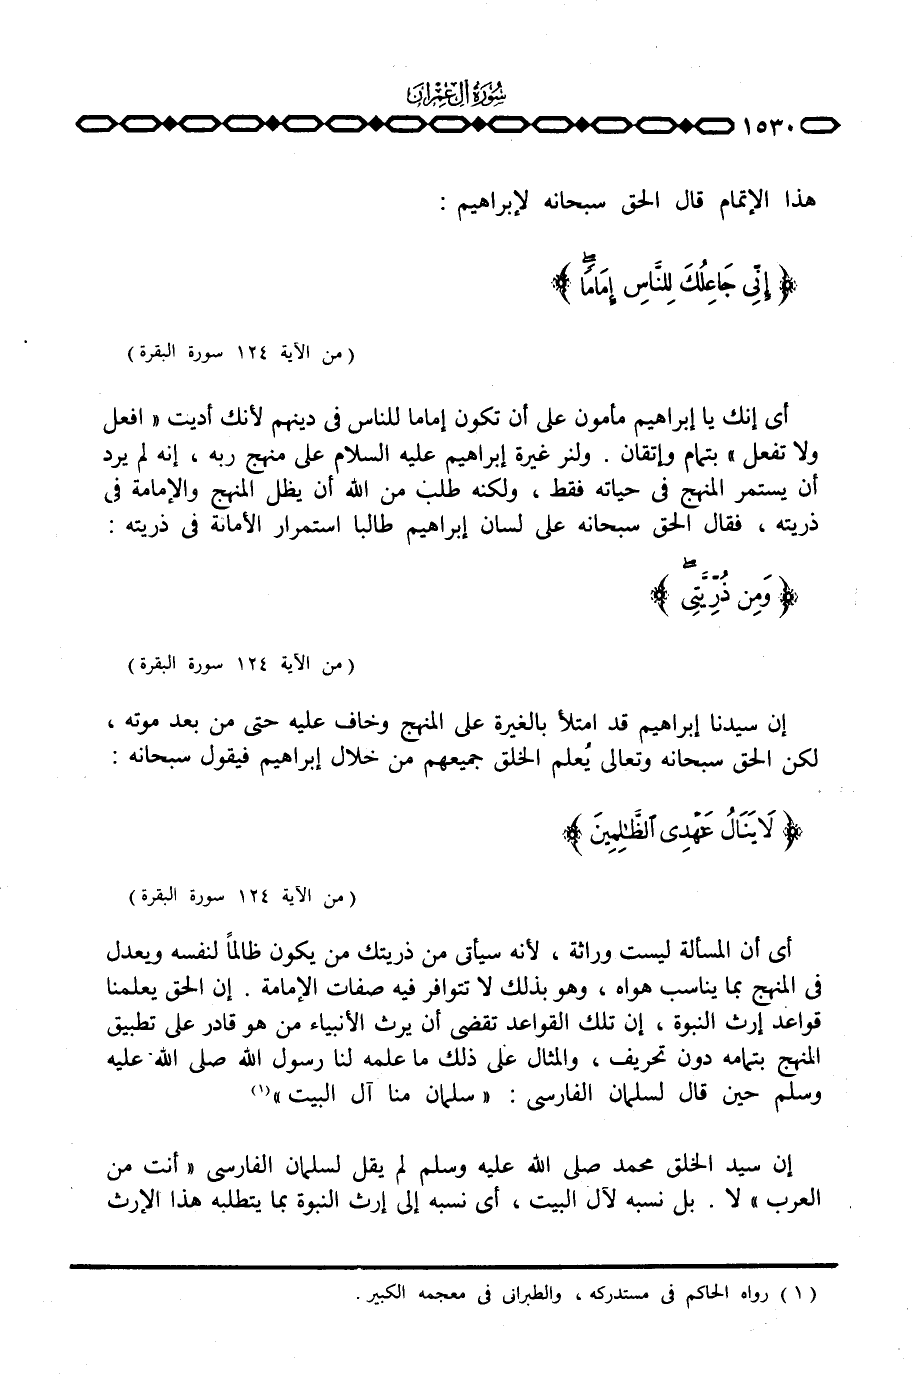 سُورَةُ آلِ عِمْرَانَ
١٥٣٠
هذا الإتمام قال الحق سبحانه لإبراهيم :
﴿ إِنِّي جَاعِلُكَ لِلنَّاسِ إِمَامًا ۖ ﴾
( من الآية ١٢٤ سورة البقرة )
أى إنك يا إبراهيم مأمون على أن تكون إماما للناس فى دينهم لأنك أديت « افعل
ولا تفعل » بتمام وإتقان . ولنر غيرة إبراهيم عليه السلام على منهج ربه ، إنه لم يرد
أن يستمر المنهج فى حياته فقط ، ولكنه طلب من الله أن يظل المنهج والإمامة فى
ذريته ، فقال الحق سبحانه على لسان إبراهيم طالبا استمرار الأمانة فى ذريته :
﴿ وَمِن ذُرِّيَّتِي ۖ ﴾
( من الآية ١٢٤ سورة البقرة )
إن سيدنا إبراهيم قد امتلأ بالغيرة على المنهج وخاف عليه حتى من بعد موته ،
لكن الحق سبحانه وتعالى يُعلم الخلق جميعهم من خلال إبراهيم فيقول سبحانه :
﴿ لَا يَنَالُ عَهْدِى ٱلظَّٰلِمِينَ ﴾
( من الآية ١٢٤ سورة البقرة )
أى أن المسألة ليست وراثة ، لأنه سيأتى من ذريتك من يكون ظالماً لنفسه ويعدل
فى المنهج بما يناسب هواه ، وهو بذلك لا تتوافر فيه صفات الإمامة . إن الحق يعلمنا
قواعد إرث النبوة ، إن تلك القواعد تقضى أن يرث الأنبياء من هو قادر على تطبيق
المنهج بتمامه دون تحريف ، والمثال على ذلك ما علمه لنا رسول الله صلى الله عليه
وسلم حين قال لسلمان الفارسى : « سلمان منا آل البيت »(١)
إن سيد الخلق محمد صلى الله عليه وسلم لم يقل لسلمان الفارسى « أنت من
العرب » لا . بل نسبه لآل البيت ، أى نسبه إلى إرث النبوة بما يتطلبه هذا الإرث
( ١ ) رواه الحاكم فى مستدركه ، والطبرانى فى معجمه الكبير .